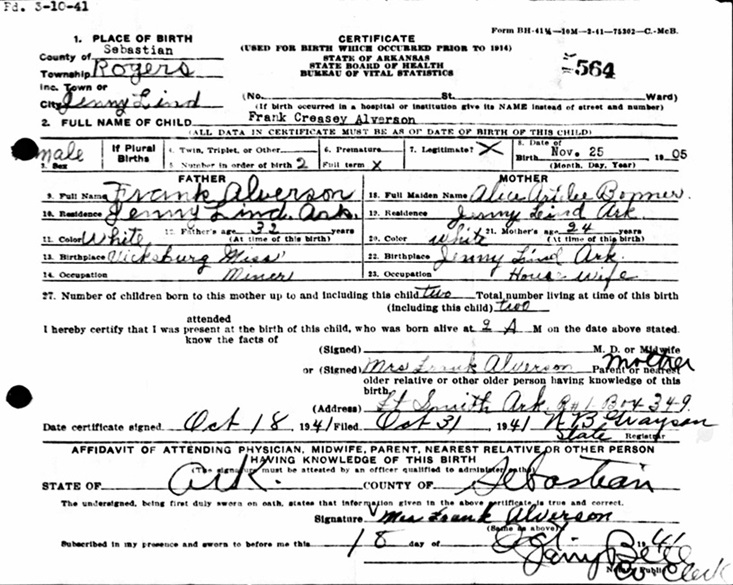 Fd. 3-10-41
Form BH-41½-10M-3-41-75302-C.-McB.
1. PLACE OF BIRTH
CERTIFICATE
Sebastian
County of
(USED FOR BIRTH WHICH OCCURRED PRIOR TO 1914)
STATE OF ARKANSAS
Township Rogers
STATE BOARD OF HEALTH
BUREAU OF VITAL STATISTICS
564
Inc. Town or
City Jenny Lind (No. St. Ward)
(If birth occurred in a hospital or institution give its NAME instead of street and number)
2. FULL NAME OF CHILD Frank Creasey Alverson
(ALL DATA IN CERTIFICATE MUST BE AS OF DATE OF BIRTH OF THIS CHILD)
male
3. Sex
If Plural Births
4. Twin, Triplet, or Other
5. Number in order of birth 2
6. Premature
Full term X
7. Legitimate? X
8. Date of
Birth Nov. 25 1905
(Month, Day, Year)
FATHER
9. Full Name Frank Alverson
10. Residence Jenny Lind. Ark.
11. Color White 12. Father's age 32 years
(At time of this birth)
13. Birthplace Vicksburg Miss
14. Occupation Miner
MOTHER
18. Full Maiden Name Alice Bonner
19. Residence Jenny Lind Ark.
20. Color White 21. Mother's age 24 years
(At time of this birth)
22. Birthplace Jenny Lind Ark
23. Occupation House wife
27. Number of children born to this mother up to and including this child two Total number living at time of this birth
(including this child) two
attended
I hereby certify that I was present at the birth of this child, who was born alive at 2 A M on the date above stated.
know the facts of
(Signed) M. D. or Midwife
or (Signed) Mrs Frank Alverson Parent or nearest mother
older relative or other older person having knowledge of this
birth
(Address) Ft Smith Ark. R#1 Box 349
Date certificate signed Oct 18 1941 Filed Oct 31 1941 Grayson
State Registrar
AFFIDAVIT OF ATTENDING PHYSICIAN, MIDWIFE, PARENT, NEAREST RELATIVE OR OTHER PERSON
HAVING KNOWLEDGE OF THIS BIRTH
(The signature must be attested by an officer qualified to administer oaths)
STATE OF Ark. COUNTY OF Sebastian
The undersigned, being first duly sworn on oath, states that information given in the above certificate is true and correct.
Signature Mrs Frank Alverson
(Same as above)
Subscribed in my presence and sworn to before me this 18 day of Oct 1941
Notary Public
Clerk